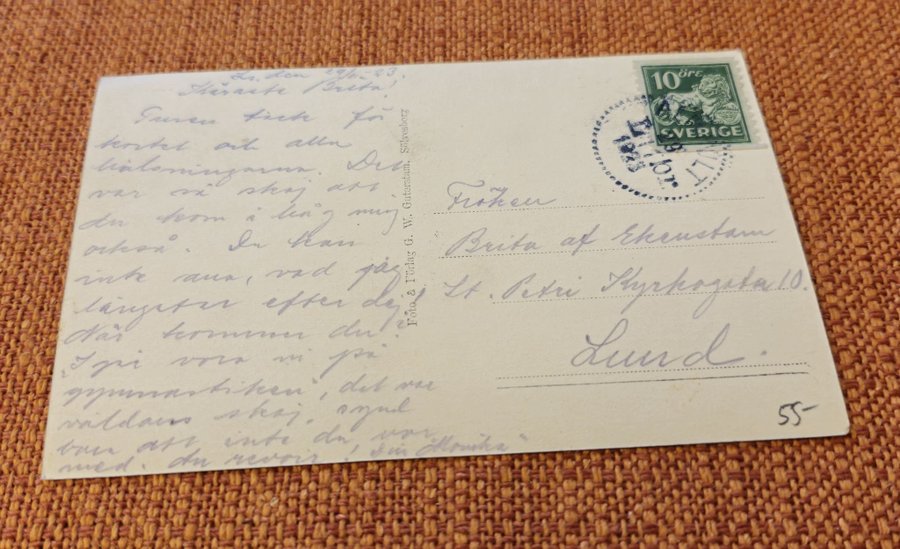 den 29/ -23.
Käraste Brita!
Tusen tack för
kortet och alla
hälsningarna. Det
var så skoj att
du kom i håg mig
också. Du kan
inte ana, vad jag
längtar efter dej!
När kommer du?
I går voro vi på
gymnastiken, det var
våldsamt skoj, synd
bara att inte du var
med. Au revoir! Din "Monika"
Foto. & Förlag G. W. Gutenstam, Sölvesborg
10 ÖRE
SVERIGE
1923
Fröken
Brita af Ekenstam
St. Petri Kyrkogata 10.
Lund.
55-